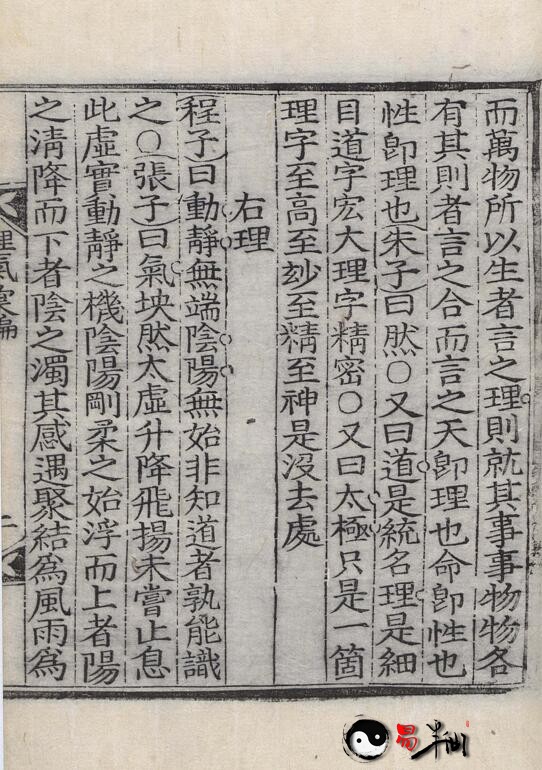 而萬物所以生者言之理則就其事事物物各
有其則者言之合而言之天卽理也命卽性也
性卽理也朱子曰然○又曰道是統名理是細
目道字宏大理字精密○又曰太極只是一箇
理字至高至玅至精至神是沒去處
右理
程子曰動靜無端陰陽無始非知道者孰能識
之○張子曰氣坱然太虛升降飛揚未嘗止息
此虛實動靜之機陰陽剛柔之始浮而上者陽
之淸降而下者陰之濁其感遇聚結為風雨為
理氣彙編
易半仙